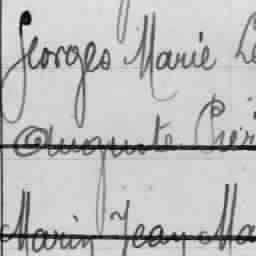 Georges Marie Le
Auguste Pier
Marin Jean Ma